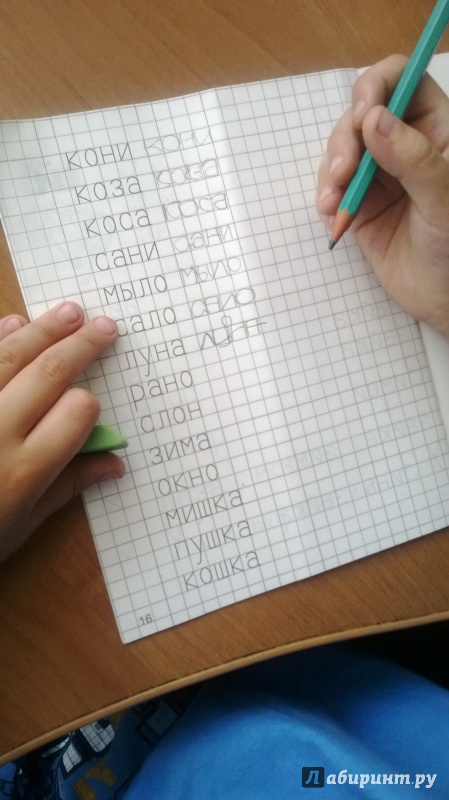 кони кони
коза коза
коса коса
сани сани
мыло мыло
сало
луна луна
рано
слон
зима
окно
мишка
пушка
кошка
16
Лабиринт.ру